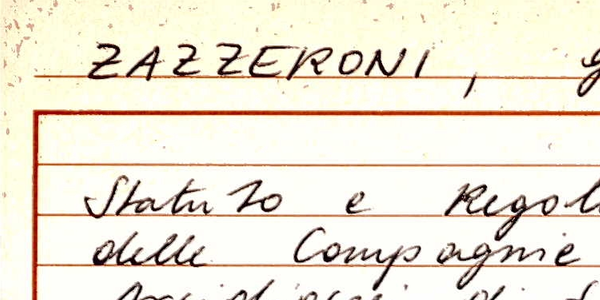 ZAZZERONI, G
Statuto e Regol
delle Compagnie
di S